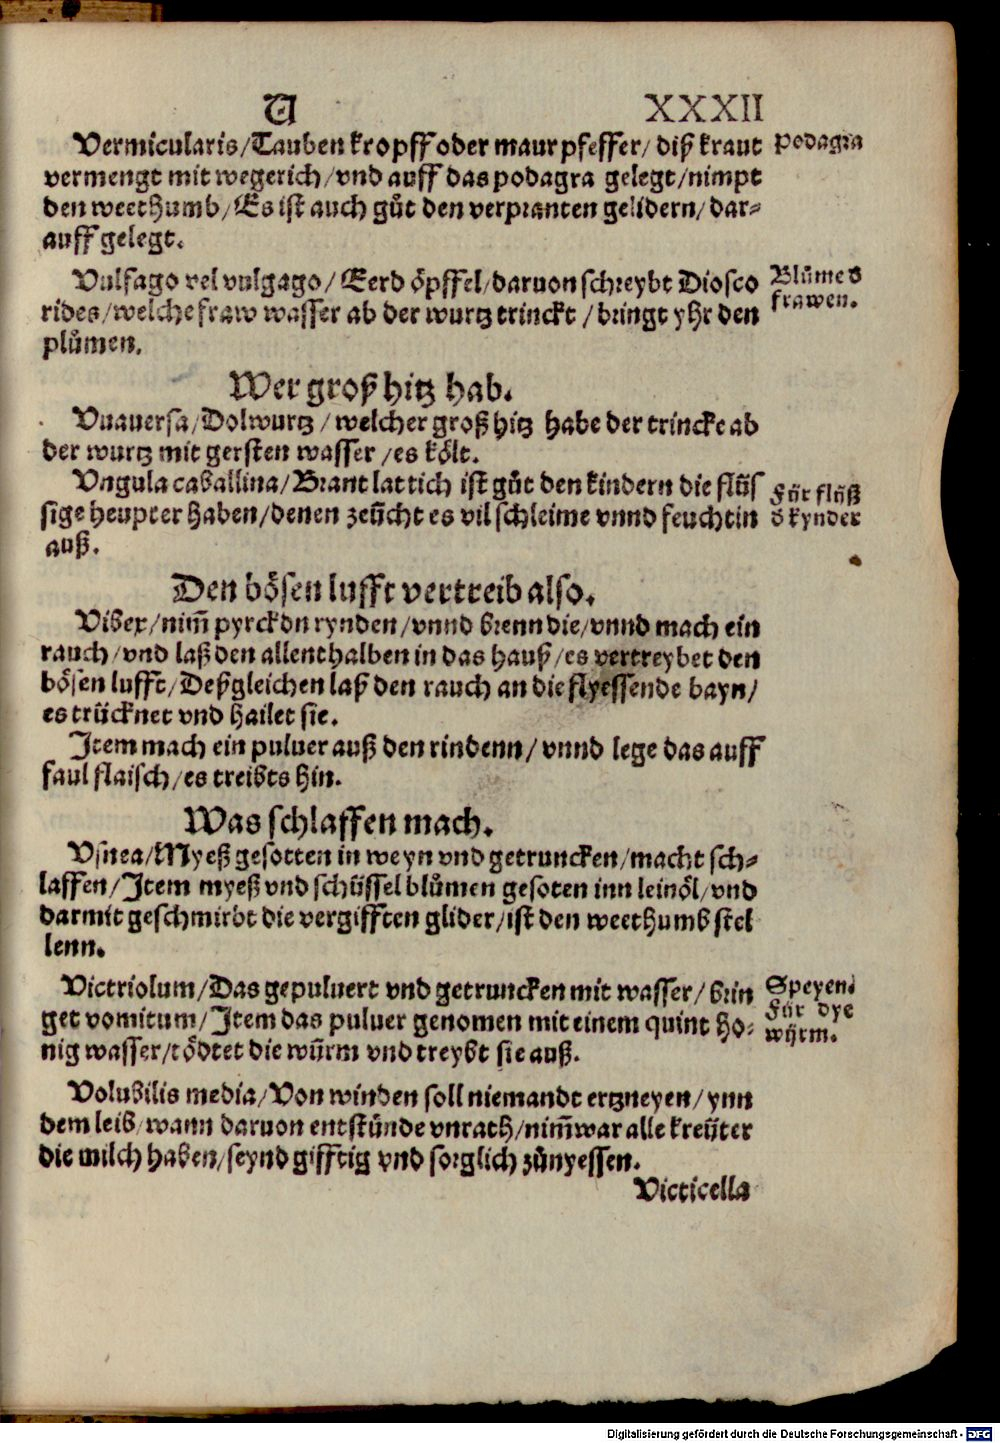 V XXXII
Vermicularis/Tauben kropff oder maurpfeffer/ diß kraut
podagra
vermengt mit wegerich/vnd auff das podagra gelegt/nimpt
den weethumb/Es ist auch gůt den verpranten gelidern/dar-
auff gelegt.
Vulfago vel vulgago/ Eerd öpffel/daruon schreybt Diosco
Blůme d
rides/welche fraw wasser ab der wurtz trinckt /bringt yhr den
frawen.
plůmen.
Wer groß hitz hab.
Vuauersa/Dolwurtz /welcher groß hitz habe der trincke ab
der wurtz mit gersten wasser /es költ.
Vngula caballina/Brant lattich ist gůt den kindern die flüs
Für flüß
sige heupter haben/denen zeücht es vil schleime vnnd feuchtin
d kynder
auß.
Den bösen lufft vertreib also.
Vibex/nim̃ pyrckdn rynden/vnnd brenn die/vnnd mach ein
rauch/vnd laß den allenthalben in das hauß/es vertreybet den
bösen lufft/Deßgleichen laß den rauch an die flyessende bayn/
es trücknet vnd hailet sie.
Item mach ein puluer auß den rindenn/vnnd lege das auff
faul flaisch/es treibts hin.
Was schlaffen mach.
Vsnea/Myeß gesotten in weyn vnd getruncken/macht sch-
laffen/Item myeß vnd schüssel blůmen gesoten inn leinöl/vnd
darmit geschmirbt die vergifften glider/ist den weethumb stel
lenn.
Victriolum/Das gepuluert vnd getruncken mit wasser/brin
Speyen.
get vomitum/Item das puluer genomen mit einem quint ho-
Für dye
nig wasser/tödtet die würm vnd treybt sie auß.
würm.
Volubilis media/Von winden soll niemandt ertzneyen/ynn
dem leib/wann daruon entstünde vnrath/nim̃war alle kreüter
die milch haben/seynd gifftig vnd sorglich zůnyessen.
Victicella
Digitalisierung gefördert durch die Deutsche Forschungsgemeinschaft - DFG